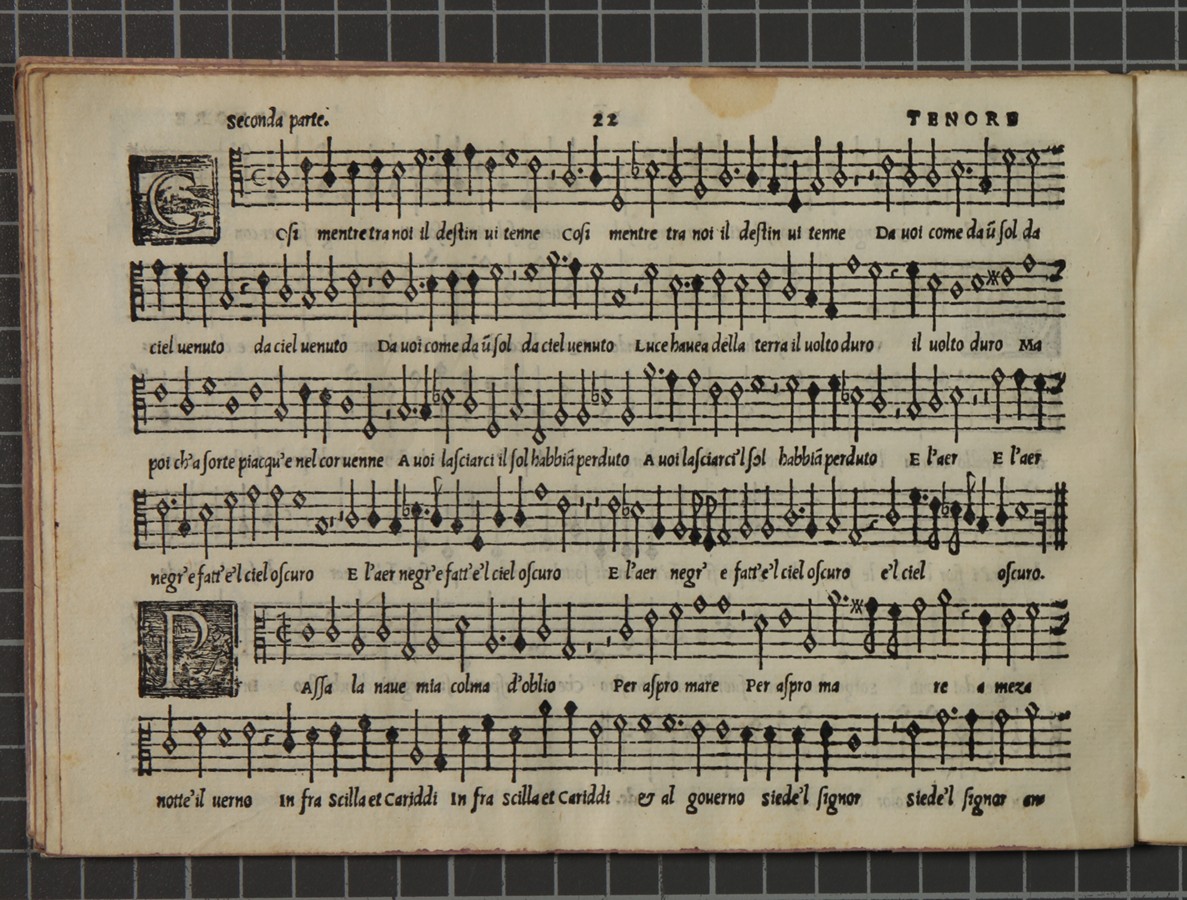 Seconda parte. 22 TENORE
COsi mentre tra noi il destin ui tenne Cosi mentre tra noi il destin ui tenne Da uoi come da ũ sol da
ciel uenuto da ciel uenuto Da uoi come da ũ sol da ciel uenuto Luce hauea della terra il uolto duro il uolto duro Ma
poi ch'a sorte piacqu'e nel cor uenne A uoi lasciarci il sol habbiã perduto A uoi lasciarci'l sol habbiã perduto E l'aer E l'aer
negr'e fatt'e'l ciel oscuro E l'aer negr'e fatt'e'l ciel oscuro E l'aer negr' e fatt'e'l ciel oscuro e'l ciel oscuro.
PAssa la naue mia colma d'oblio Per aspro mare Per aspro ma re a meza
notte'il uerno In fra Scilla et Cariddi In fra Scilla et Cariddi & al gouerno siede'l signor siede'l signor